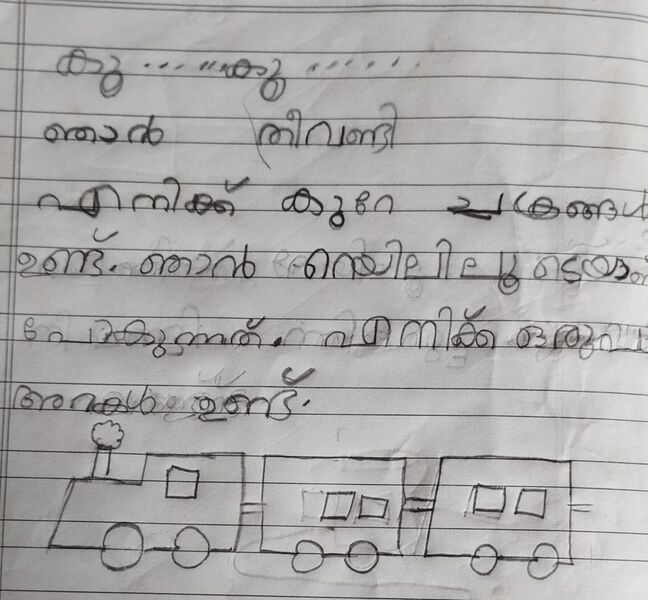 കൂ ........കൂ .......
ഞാൻ തീവണ്ടി
എനിക്ക് കുറേ ചക്രങ്ങൾ
ഉണ്ട്. ഞാൻ റെയിലിലൂടെയാണ്
പോകുന്നത്. എനിക്ക് ഒരുപാട്
അറകൾ ഉണ്ട്.